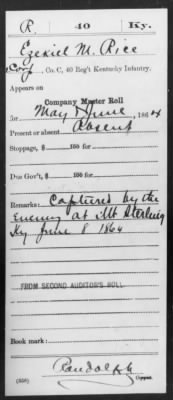 R. 40 Ky.
Ezekiel M. Rice
Corp, Co. C, 40 Reg't Kentucky Infantry.
Appears on
Company Muster Roll
for May & June, 1864
Present or absent Absent
Stoppage, $ 100 for
Due Gov't, $ 100 for
Remarks: Captured by the
Enemy at Mt Sterling
Ky June 8 1864
FROM SECOND AUDITOR'S ROLL
Book mark:
Randolph
(358) Copyist.